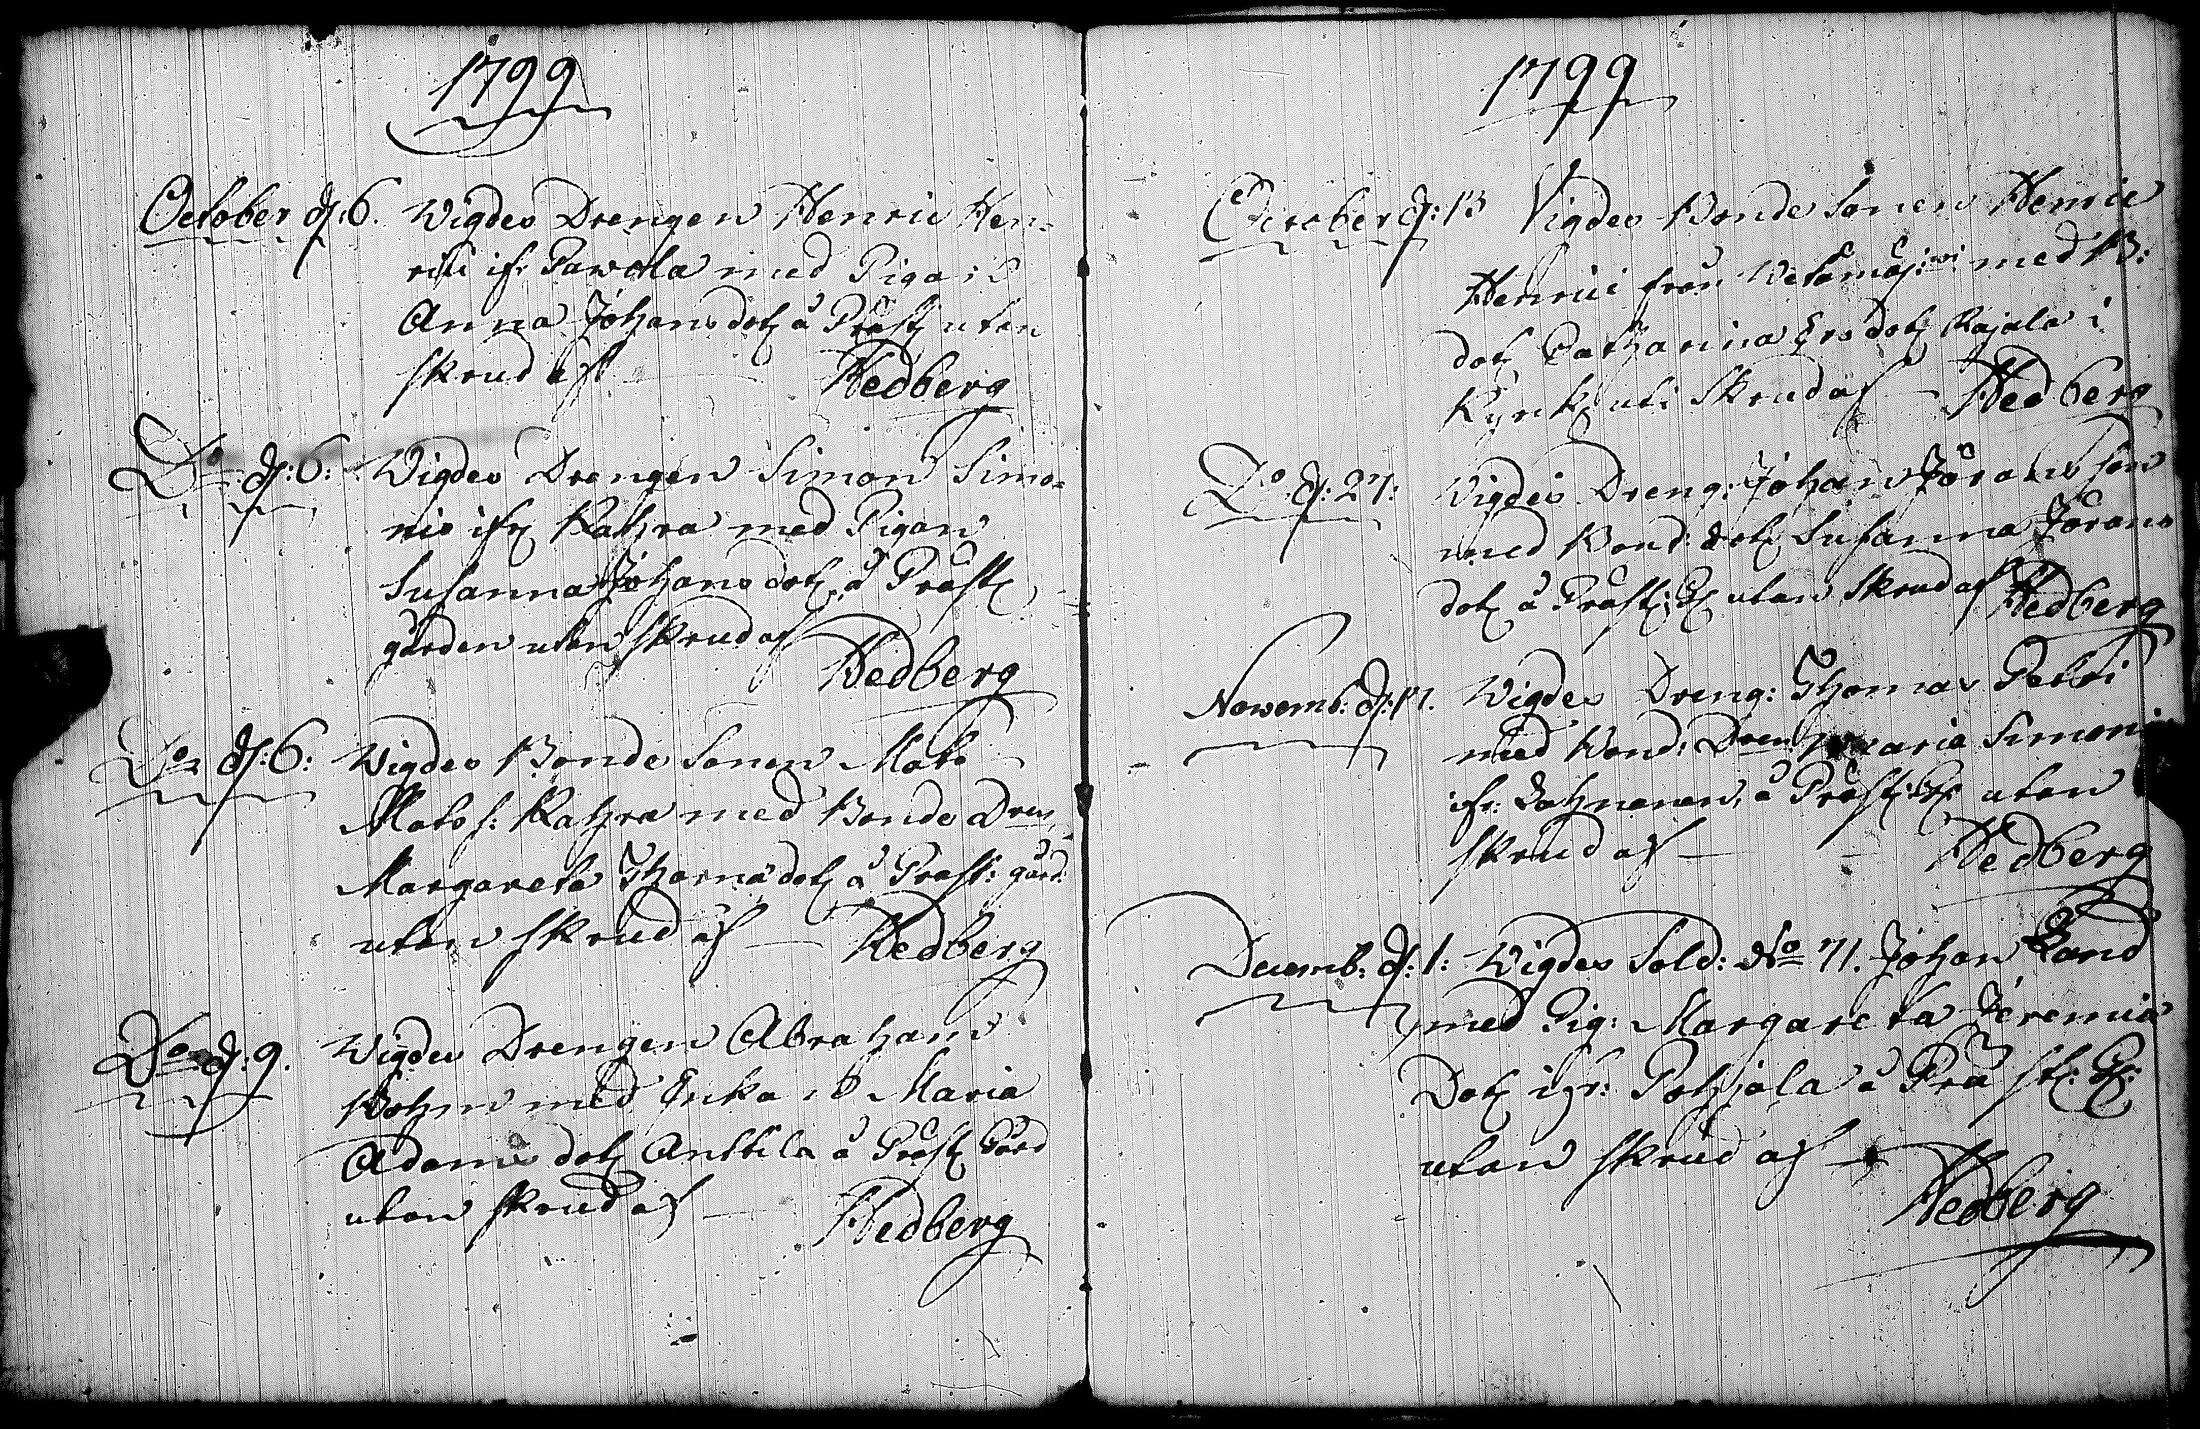 1799
October d: 6. Wigdes Drengen Henric Hen=
rici ifr: Pawola med Pigan
Anna Johans dotr å Prästg utan
skrud af Hedberg
Do d: 6: Wigdes Drengen Simon Simo=
nis ifr Katzra med Pigan
Susanna Johans dotr å Präst
gården utan skrud af
Hedberg
Do d: 6: Wigdes Bonde Sonen Mats
Mats s: Katzra med Bonde Dren
Margareta Thomædotr å Präst: gård:
utan skrud af Hedberg
Do d: 9. Wigdes Drengen Abraham
Bohm med Enka Maria
Adams dotr Anttila å Präst Gård
utan skrud af Hedberg
1799
October d: 13 Vigdes Bonde Sonen Henric
Henrici från med B:
dotr Catharina Ers dotr Rajala i
Kyrk uti Skrud af Hedberg
Do d: 27: Wigdes Dreng: Johan Jörans son
med Bond: dotr Susanna Jörans
dotr å Präst: G utan Skrud af Hedberg
Novemb: d: 17. Wigdes Dreng: Thomas Petri
med Bond: Dren Maria Simoni
ifr: å Präst: G: utan
skrud af Hedberg
Decemb: d: 1: Wigdes Sold: No 71. Johan Land
med Pig: Margareta Jeremiæ
Dotr ifr: Pohjala å Präst: G:
utan skrud af
Hedberg